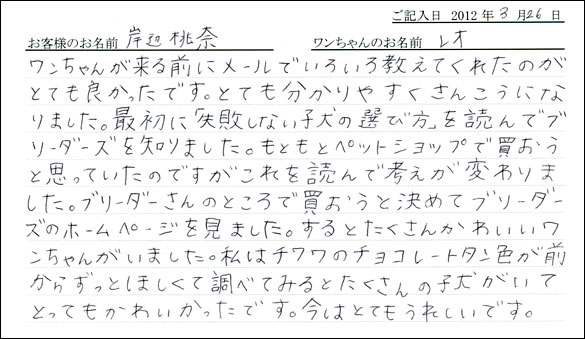 ご記入日 2012 年 3 月 26 日
お客様のお名前 岸辺 桃奈 ワンちゃんのお名前 レオ
ワンちゃんが来る前にメールでいろいろ教えてくれたのが
とても良かったです。とても分かりやすくさんこうにな
りました。最初に「失敗しない子犬の選び方」を読んでブ
リーダーズを知りました。もともとペットショップで買おう
と思っていたのですがこれを読んで考えが変わりま
した。ブリーダーさんのところで買おうと決めてブリーダー
ズのホームページを見ました。するとたくさんかわいいワ
ンちゃんがいました。私はチワワのチョコレートタン色が前
からずっとほしくて調べてみるとたくさんの子犬がいて
とってもかわいかったです。今はとてもうれしいです。